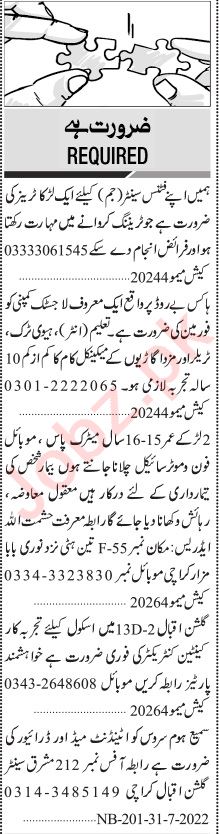 ضرورت ہے
REQUIRED
ہمیں اپنے فٹنس سینٹر (جم) کیلئے ایک لڑکا ٹرینر کی
ضرورت ہے جو ٹریننگ کروانے میں مہارت رکھتا
ہو اور فرائض انجام دے سکے 03333061545
کیش میمو 20244
ہاکس بے روڈ پر واقع ایک معروف لاجسٹک کمپنی کو
فورمین کی ضرورت ہے۔ تعلیم (انٹر)، ہیوی ٹرک،
ٹریلر اور مزدا گاڑیوں کے میکینکل کام کا کم از کم 10
سالہ تجربہ لازمی ہو۔ 0301-2222065
کیش میمو 20244
2 لڑکے عمر 15-16 سال میٹرک پاس، موبائل
فون و موٹر سائیکل چلانا جانتے ہوں بیمار شخص کی
تیمارداری کے لئے درکار ہیں معقول معاوضہ،
رہائش و کھانا دیا جائے گا رابطہ معرفت حشمت اللہ
ایڈریس: مکان نمبر F-55 تین ہٹی نزد نوری بابا
مزار کراچی موبائل نمبر 0334-3323830
کیش میمو 20264
گلشن اقبال 13D-2 میں اسکول کیلئے تجربہ کار
کینٹین کنٹریکٹر کی فوری ضرورت ہے خواہشمند
پارٹیز رابطہ کریں موبائل 0343-2648608
کیش میمو 20264
سمیع ہوم سروس کو اٹینڈنٹ میڈ اور ڈرائیور کی
ضرورت ہے رابطہ آفس نمبر 212 مشرق سینٹر
گلشن اقبال کراچی 0314-3485149
NB-201-31-7-2022
Jobz.pk